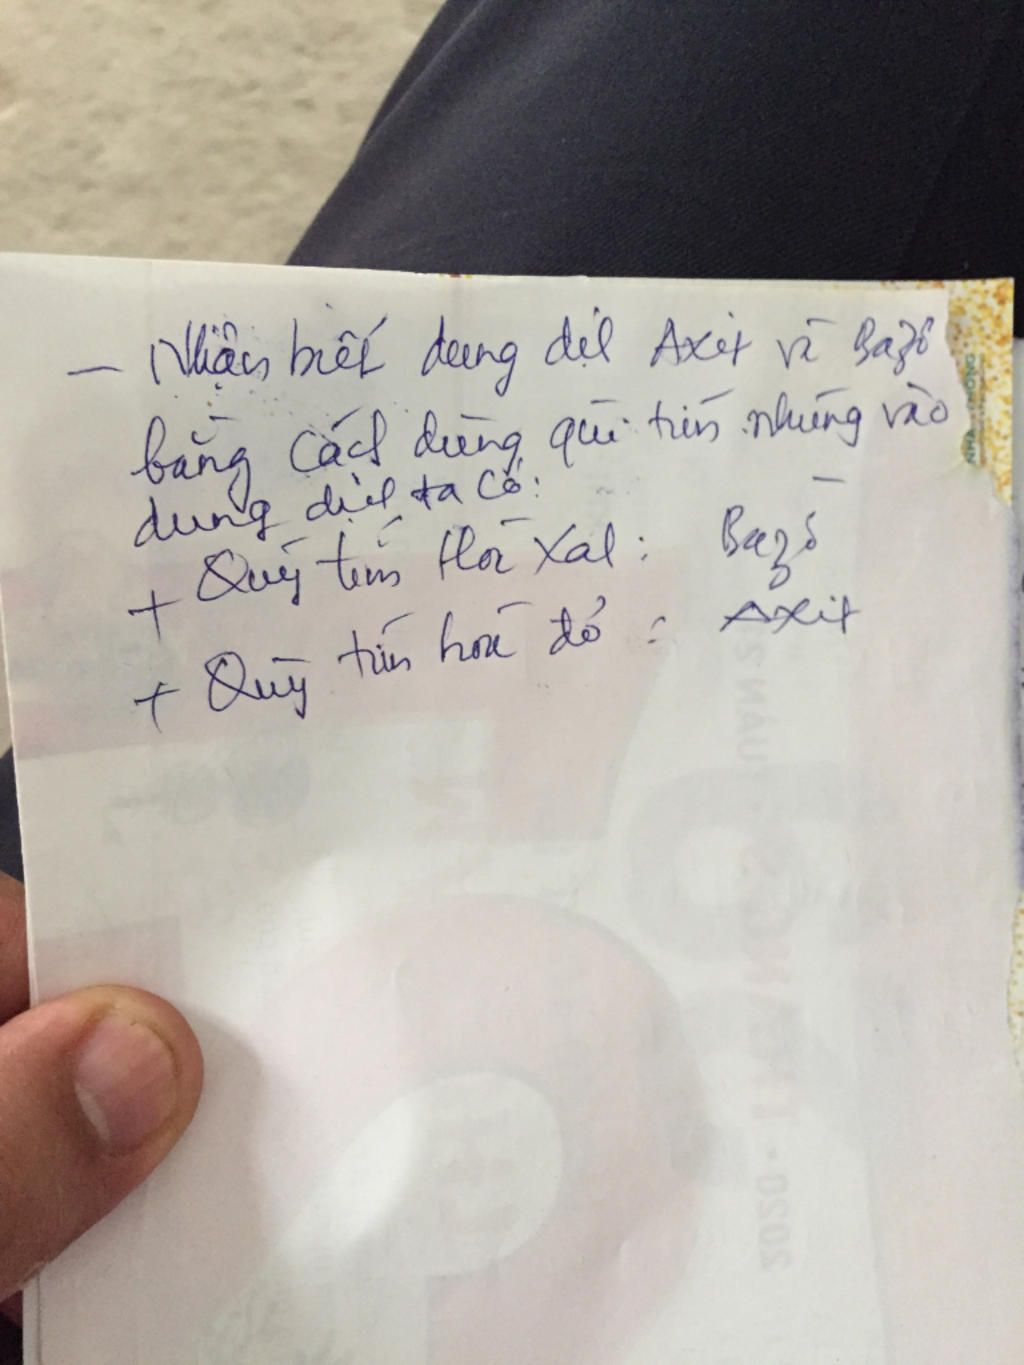 - Nhận biết dung dịch Axit và Bazơ
bằng cách dùng quì tím nhúng vào
dung dịch ta có:
+ Quỳ tím hóa xanh: Bazơ
+ Quỳ tím hoá đỏ: Axit
2020 -